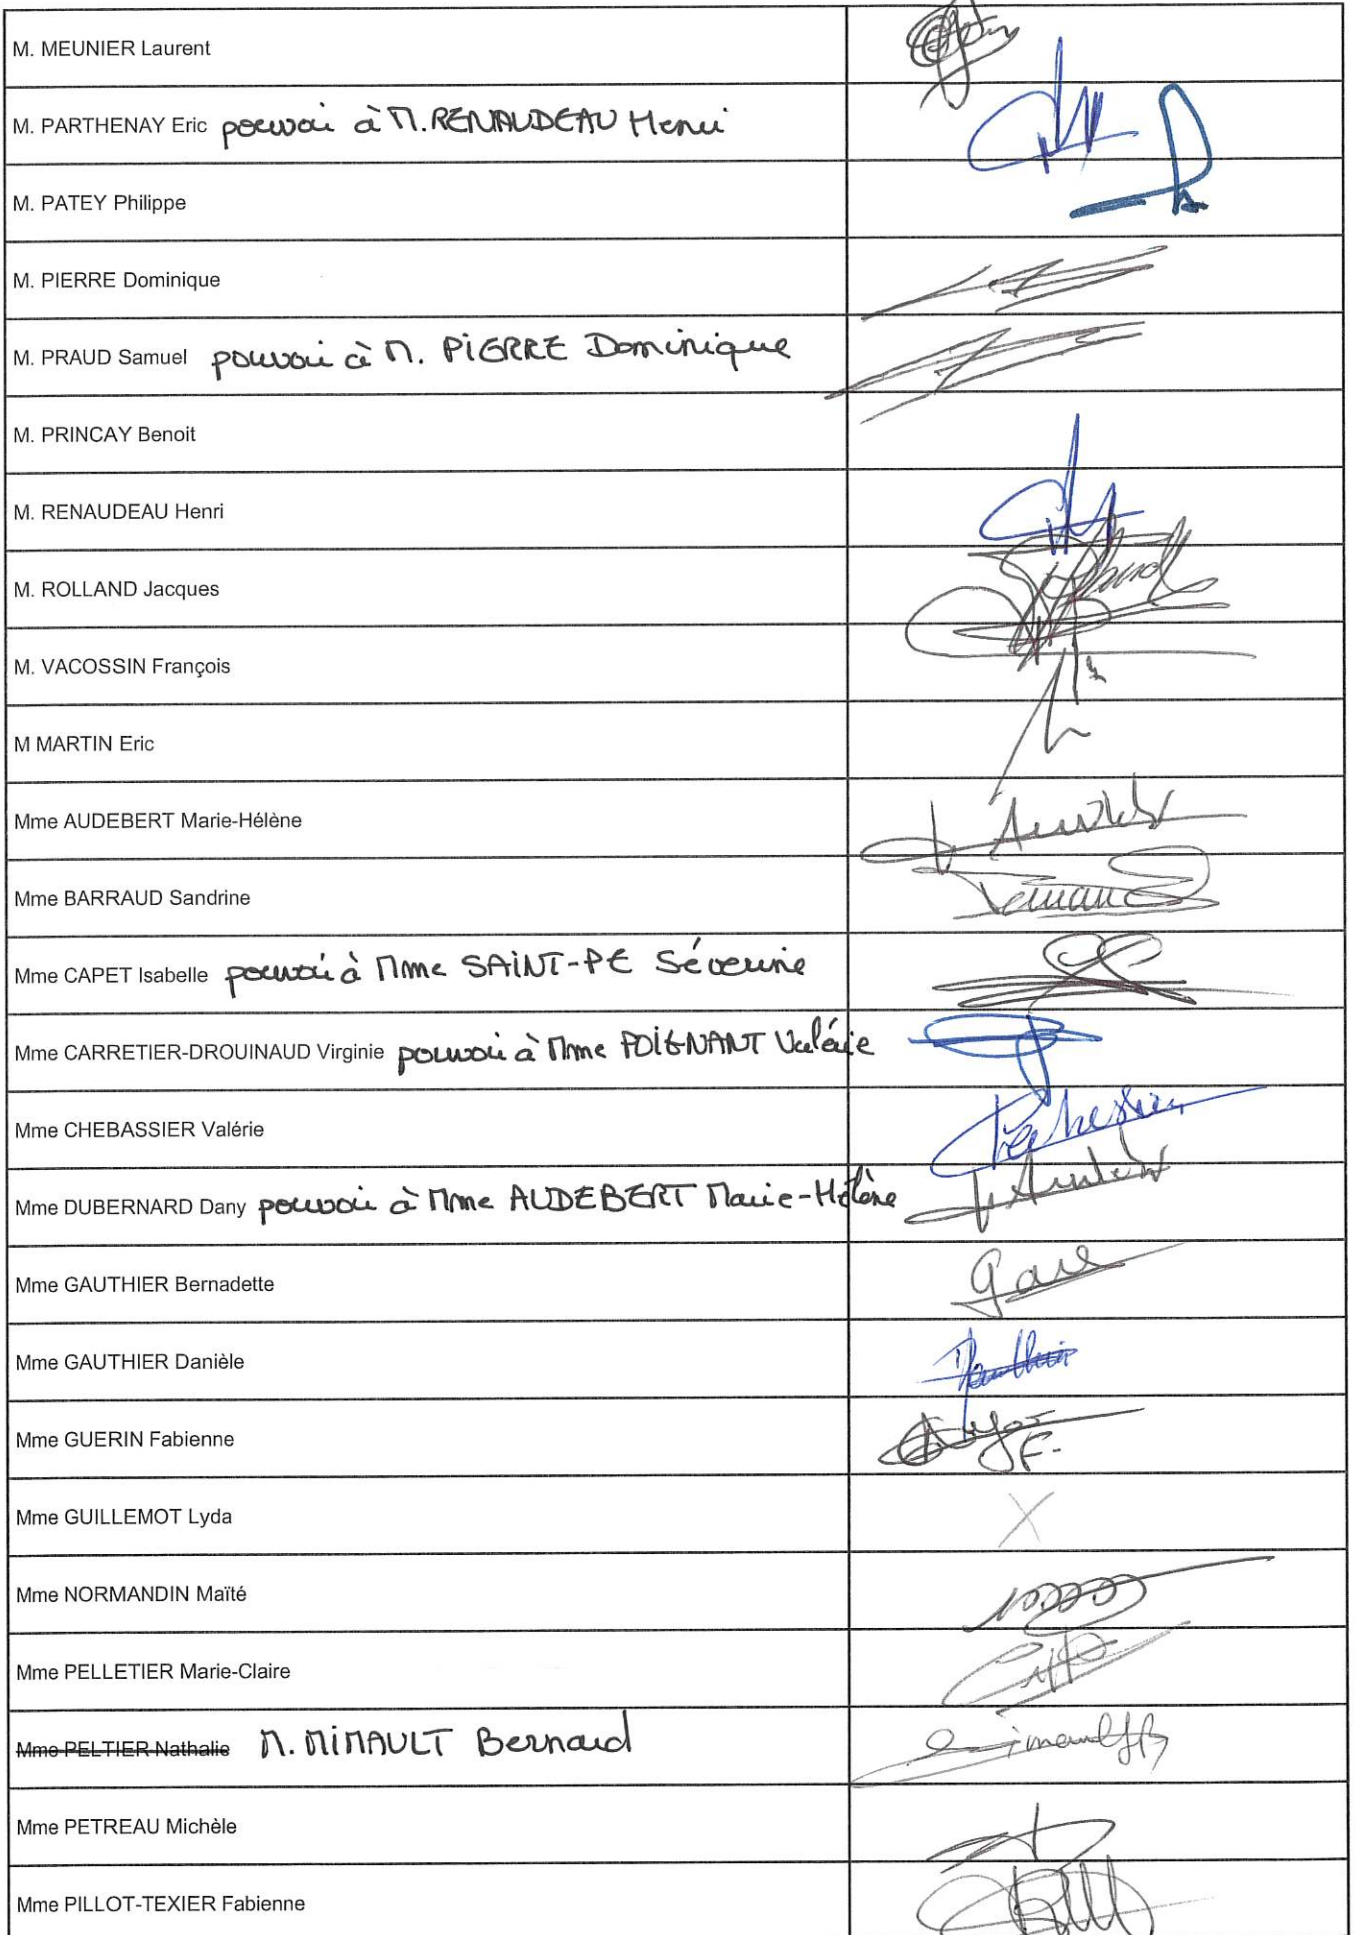 M. MEUNIER Laurent
M. PARTHENAY Eric pouvoir à M. RENAUDEAU Henri
M. PATEY Philippe
M. PIERRE Dominique
M. PRAUD Samuel pouvoir à M. PIERRE Dominique
M. PRINCAY Benoit
M. RENAUDEAU Henri
M. ROLLAND Jacques
M. VACOSSIN François
M MARTIN Eric
Mme AUDEBERT Marie-Hélène
Mme BARRAUD Sandrine
Mme CAPET Isabelle pouvoir à Mme SAINT-PE Séverine
Mme CARRETIER-DROUINAUD Virginie pouvoir à Mme POIGNANT Valérie
Mme CHEBASSIER Valérie
Mme DUBERNARD Dany pouvoir à Mme AUDEBERT Marie-Hélène
Mme GAUTHIER Bernadette
Mme GAUTHIER Danièle
Mme GUERIN Fabienne
Mme GUILLEMOT Lyda X
Mme NORMANDIN Maïté
Mme PELLETIER Marie-Claire
Mme PELTIER Nathalie M. MIMAULT Bernard
Mme PETREAU Michèle
Mme PILLOT-TEXIER Fabienne